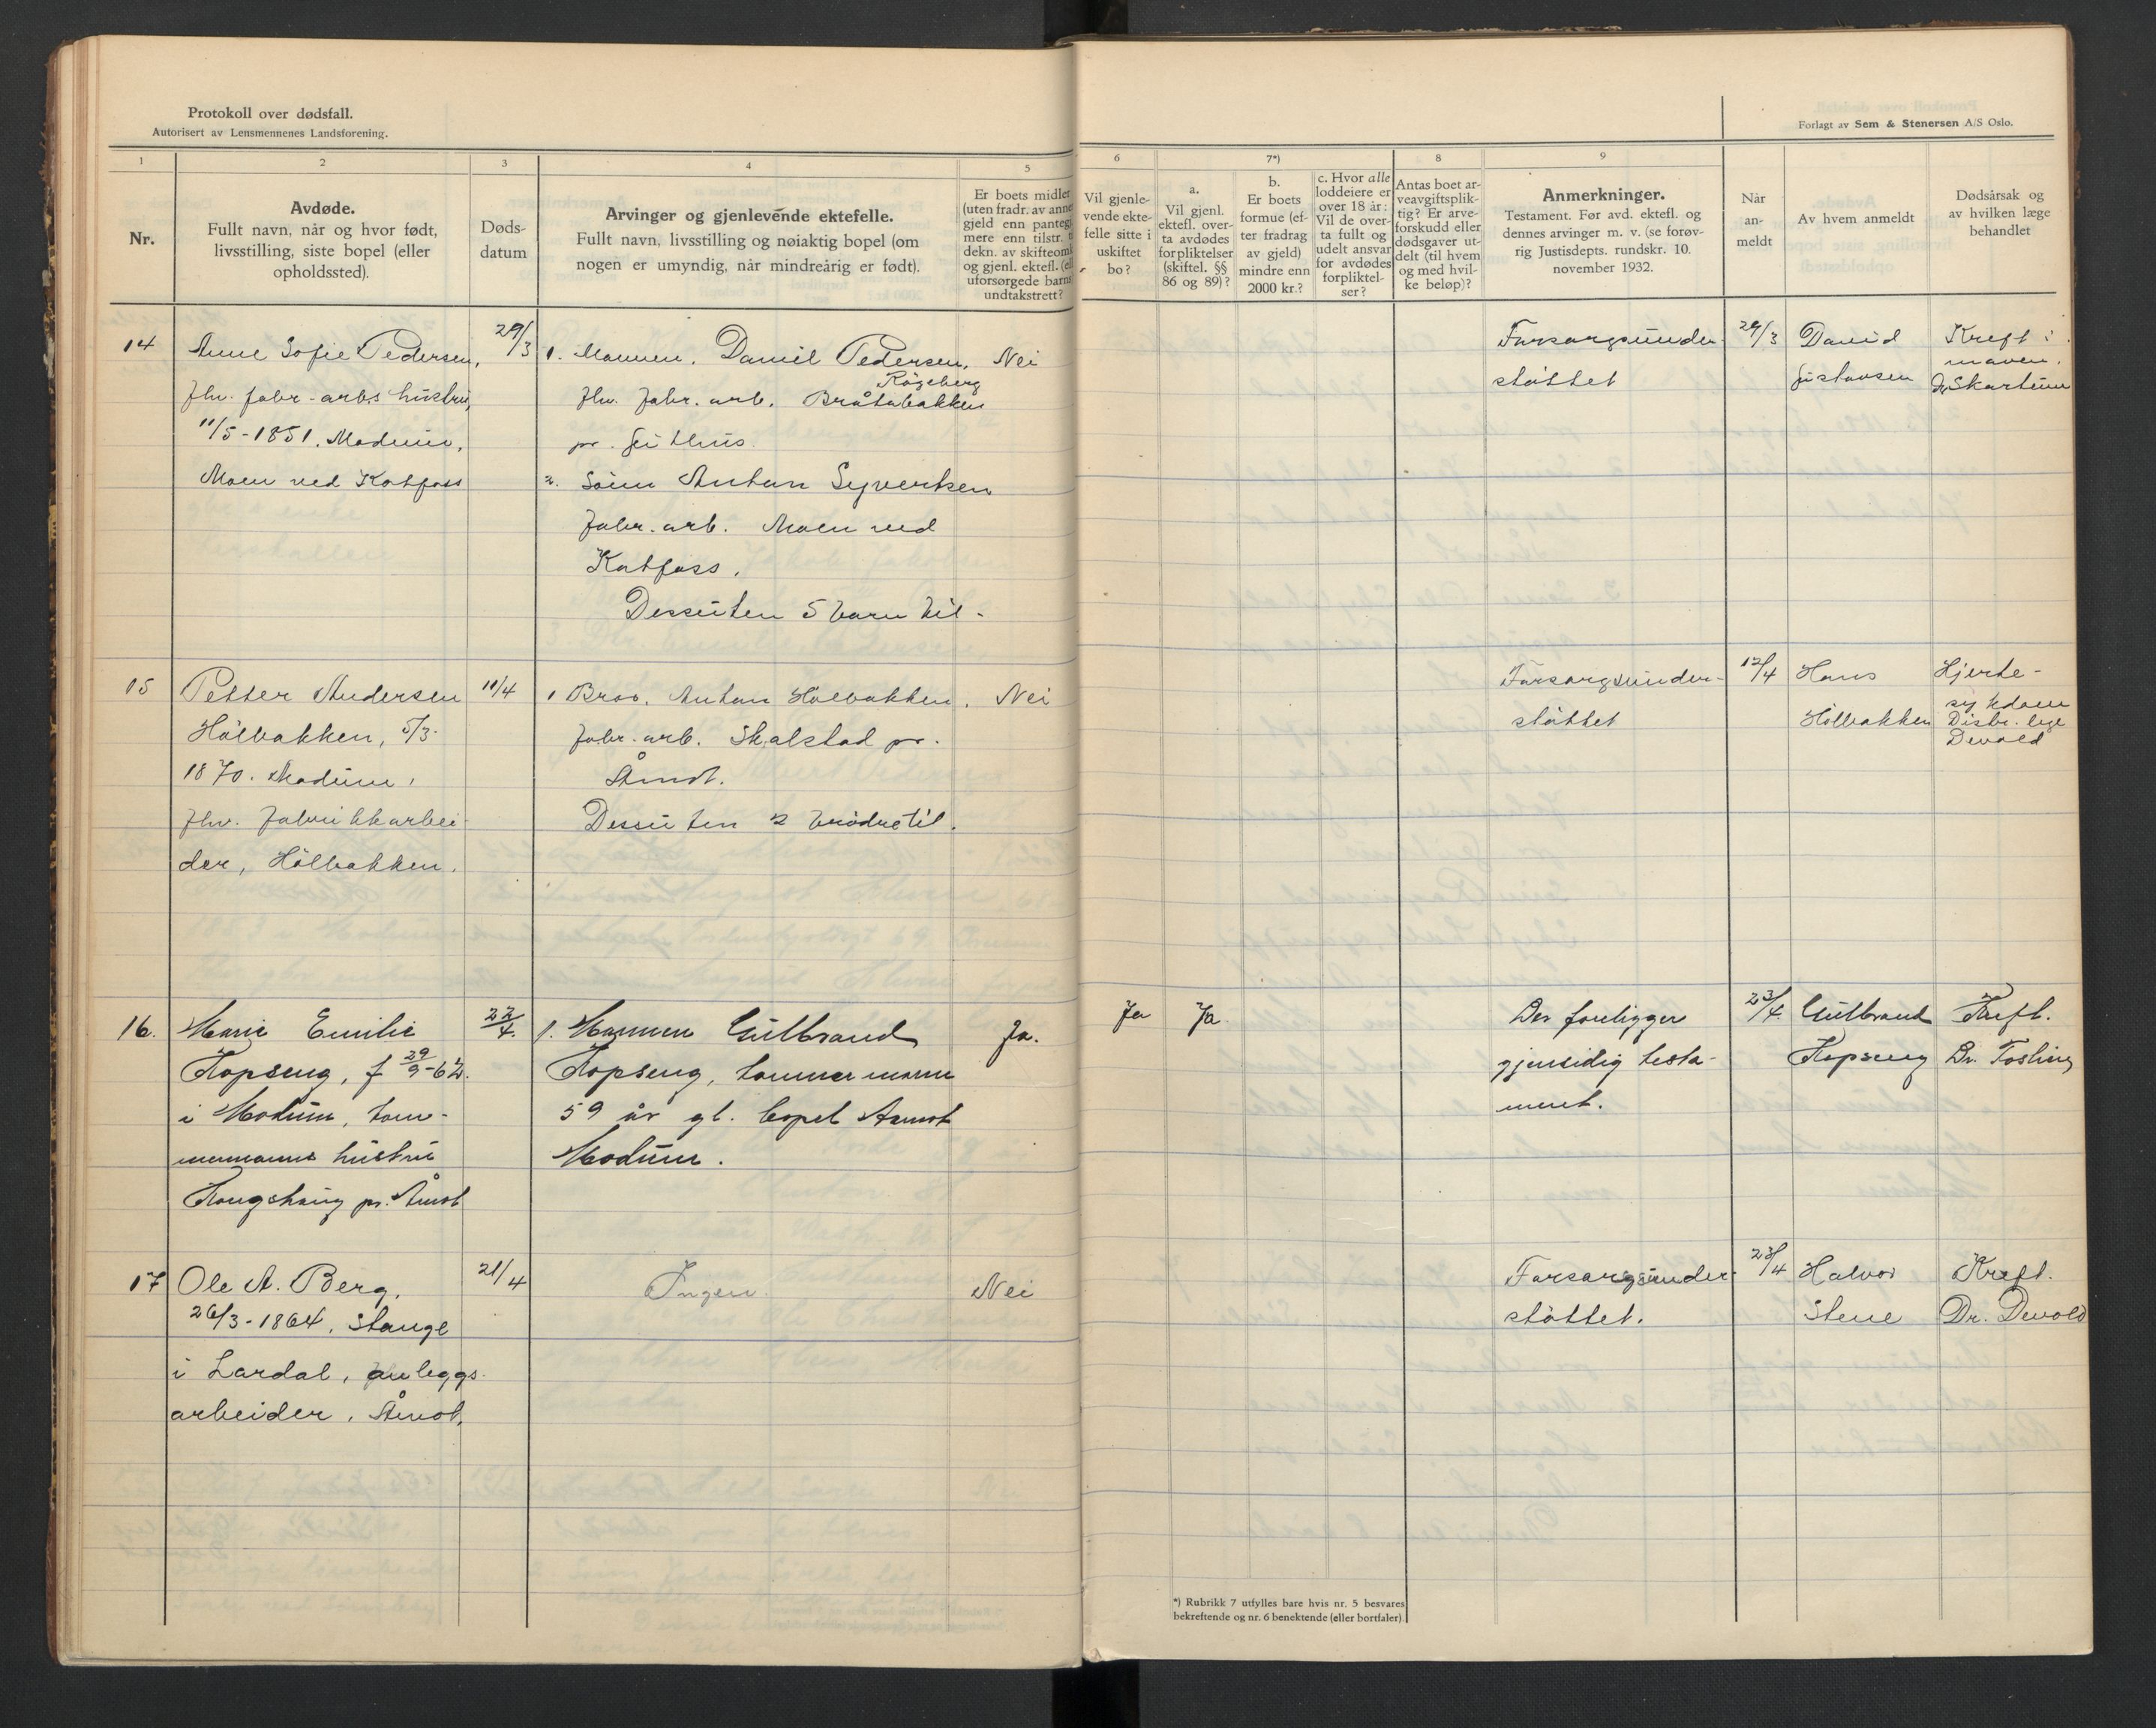 Protokoll over dødsfall.
Autorisert av Lensmennenes Landsforening.
Forlagt av Sem & Stenersen A/S Oslo.
1
2
3
4
5
6
7*)
8
9
Nr.
Avdøde.
Fullt navn, når og hvor født,
livsstilling, siste bopel (eller
opholdssted).
Døds-
datum
Arvinger og gjenlevende ektefelle.
Fullt navn, livsstilling og nøiaktig bopel (om
nogen er umyndig, når mindreårig er født).
Er boets midler
(uten fradr. av annen
gjeld enn pantegj.
mere enn tilstr. t
dekn. av skifteomk
og gjenl. ektefl. (el
uforsørgede barns
undtakstrett?
Vil gjenle-
vende ekte-
felle sitte i
uskiftet
bo?
a.
Vil gjenl.
ektefl. over-
ta avdødes
forpliktelser
(skiftel. §§
86 og 89)?
b.
Er boets
formue (ef-
ter fradrag
av gjeld)
mindre enn
2000 kr.?
c. Hvor alle
loddeiere er
over 18 år:
Vil de over-
ta fullt og
udelt ansvar
for avdødes
forpliktel-
ser?
Antas boet ar-
veavgiftsplik-
tig? Er arve-
forskudd eller
dødsgaver ut-
delt (til hvem
og med hvil-
ke beløp)?
Anmerkninger.
Testament. Før avd. ektefl. og
dennes arvinger m. v. (se forøv-
rig Justisdepts. rundskr. 10.
november 1932.
Når
an-
meldt
Av hvem anmeldt
Dødsårsak og
av hvilken læge
behandlet
14
Anne Sofie Pedersen,
fhv. fabr-arbs hustru,
11/5-1851. Modum,
Moen ved Katfoss
29/3
1. Mannen. Daniel Pedersen,
Rågeberg
fhv. fabr. arb. Bråtabakken
pr. Geithus.
2. Sønn Anton Syvertsen
fabr. arb. Moen ved
Katfoss.
Dessuten 5 barn til.
Nei
Forsorgsunder-
støttet
29/3
David
Gustavsen
Kreft i
maven.
Dr Skartum
15
Petter Andersen
Hølbakken, 5/3-
1870. Modum,
fhv. fabrikkarbei-
der, Hølbakken.
11/4
1 Bror. Anton Hølbakken.
fabr. arb. Skalstad pr.
Åmot.
Dessuten 2 brødre til.
Nei
Forsorgsunder-
støttet
12/4
Hans
Hølbakken
Hjerte-
sykdom
Distr. lege
Devold
16.
Marie Emilie
Kopseng, f 29/9-62.
i Modum, tøm-
mermanns hustru
Kongshaug pr. Åmot
22/4.
1. Mannen Gulbrand
Kopseng, tømmermann
59 år gl. bopel Aamot
Modum.
Ja.
Ja
Ja.
Der foreligger
gjensidig testa-
ment.
23/4.
Gulbrand
Kopseng
Kreft.
Dr. Fosling
17
Ole A. Berg.
26/3-1864, Stange
i Lardal, anleggs-
arbeider, Åmot.
21/4
Ingen.
Nei
Forsorgsunder-
støttet.
23/4
Halvor
Stene
Kreft.
Dr. Devold
*) Rubrikk 7 utfylles bare hvis nr. 5 besvares
bekreftende og nr. 6 benektende (eller bortfaler).